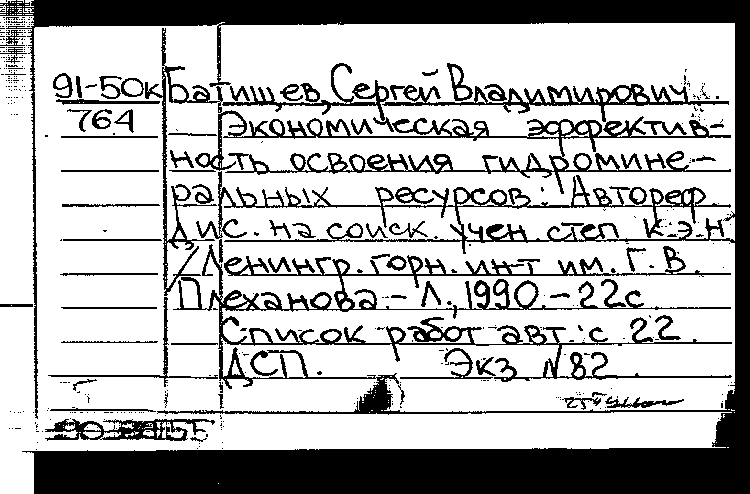 91-50к Батищев, Сергей Владимирович.
764 Экономическая эффектив-
ность освоения гидромине-
ральных ресурсов: Автореф.
дис. на соиск. учен. степ к.э.н
/Ленингр. горн. ин-т им. Г. В.
Плеханова.- Л., 1990.-22с.
Список работ авт.: с. 22.
ДСП. Экз. N82